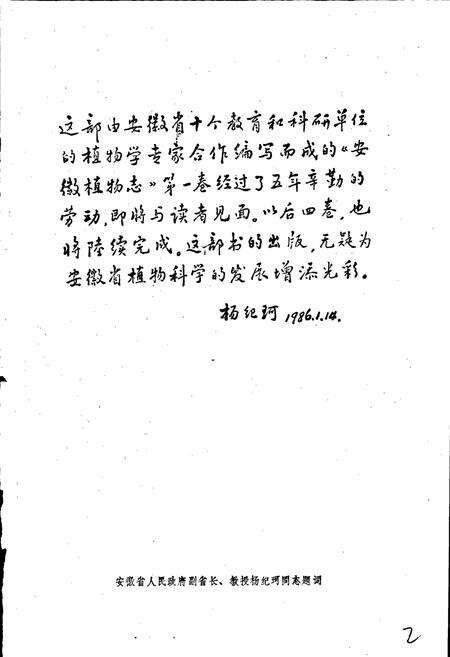 这部由安徽省十个教育和科研单位
的植物学专家合作编写而成的《安
徽植物志》第一卷经过了五年辛勤的
劳动,即将与读者见面。以后四卷,也
将陆续完成。这部书的出版,无疑为
安徽省植物科学的发展增添光彩。
杨纪珂 1986.1.14.
安徽省人民政府副省长、教授杨纪珂同志题词
2